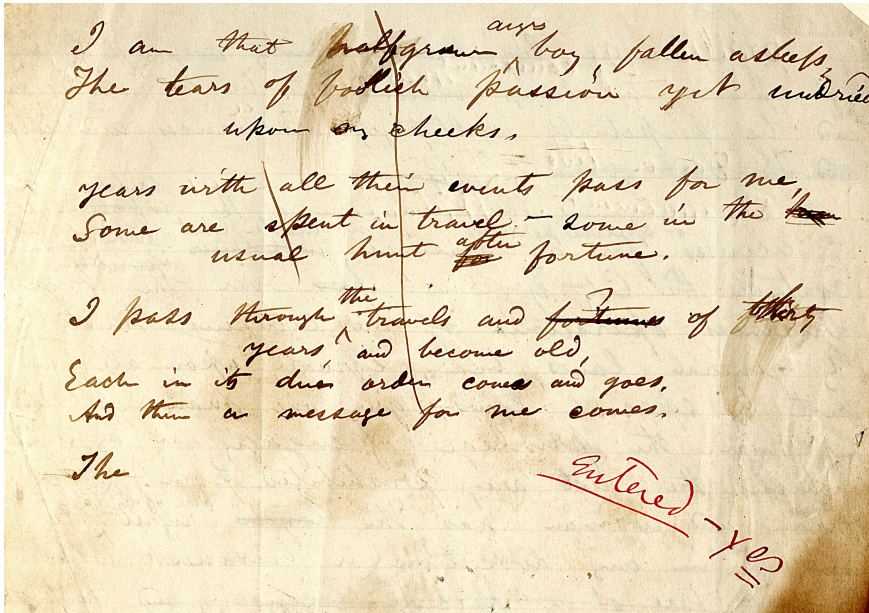 angry
I am that halfgrown boy, fallen asleep,
The tears of foolish passion yet undried
upon my cheeks.
years with all their events pass for me,
Some are spent in travel – some in the
usual hunt after for fortune.
I pass through the travels and fortunes of thirty
years, and become old,
Each in its due order comes and goes,
And then a message for me comes.
The
Entered – Yes